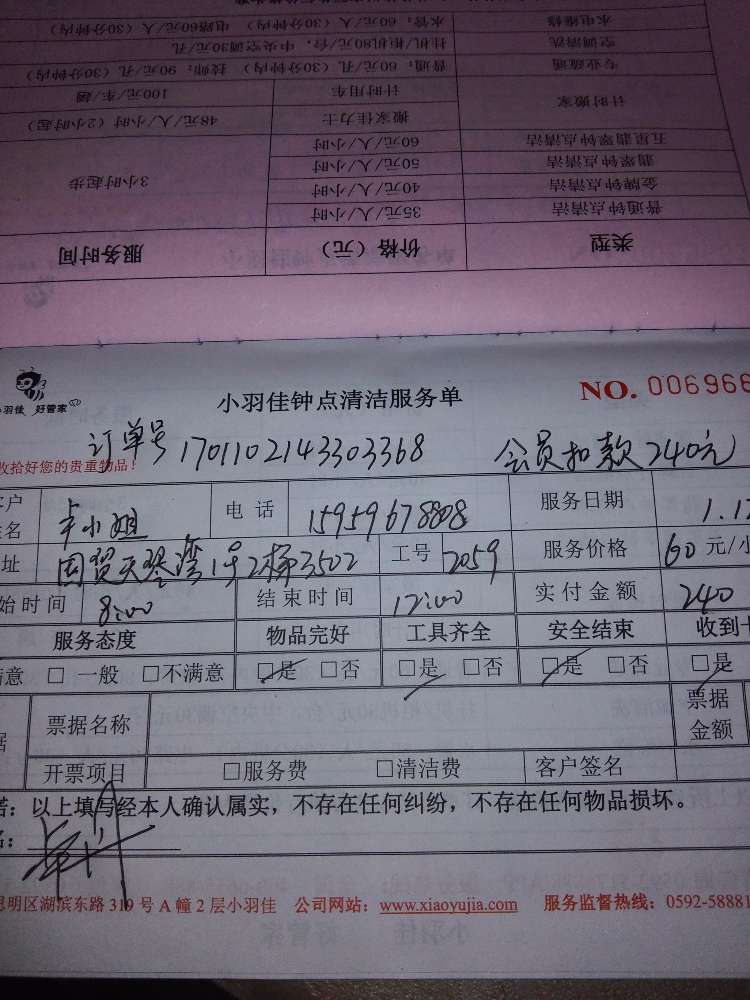 水电维修 水管：60元/人（30分钟内） 电路60元/人（30分钟内）
空调清洗 挂机/柜机80元/台，中央空调30元/孔
专业疏通 普通：60元/孔（30分钟内） 技师：90元/孔（30分钟内）
计时搬家 计时用车 100元/车/趟
搬家佳力士 48元/人/小时（2小时起）
五星翡翠钟点清洁 60元/人/小时
翡翠钟点清洁 50元/人/小时
金牌钟点清洁 40元/人/小时 3小时起步
普通钟点清洁 35元/人/小时
类型 价格（元） 服务时间
小羽佳 好管家
小羽佳钟点清洁服务单 NO. 006966
订单号 1701102143303368 会员扣款240元
收拾好您的贵重物品！
客户姓名 卡小姐 电话 15959678808 服务日期 1.1
址 国贸天琴湾1号2梯3502 工号 2059 服务价格 60 元/小
始时间 8:00 结束时间 12:00 实付金额 240
服务态度 物品完好 工具齐全 安全结束 收到
满意 □ 一般 □不满意 □是 □否 □是 □否 □是 □否 □是
据 票据名称 票据金额
开票项目 □服务费 □清洁费 客户签名
诺：以上填写经本人确认属实，不存在任何纠纷，不存在任何物品损坏。
名：
思明区湖滨东路 319 号 A 幢 2 层小羽佳 公司网站：www.xiaoyujia.com 服务监督热线：0592-58881